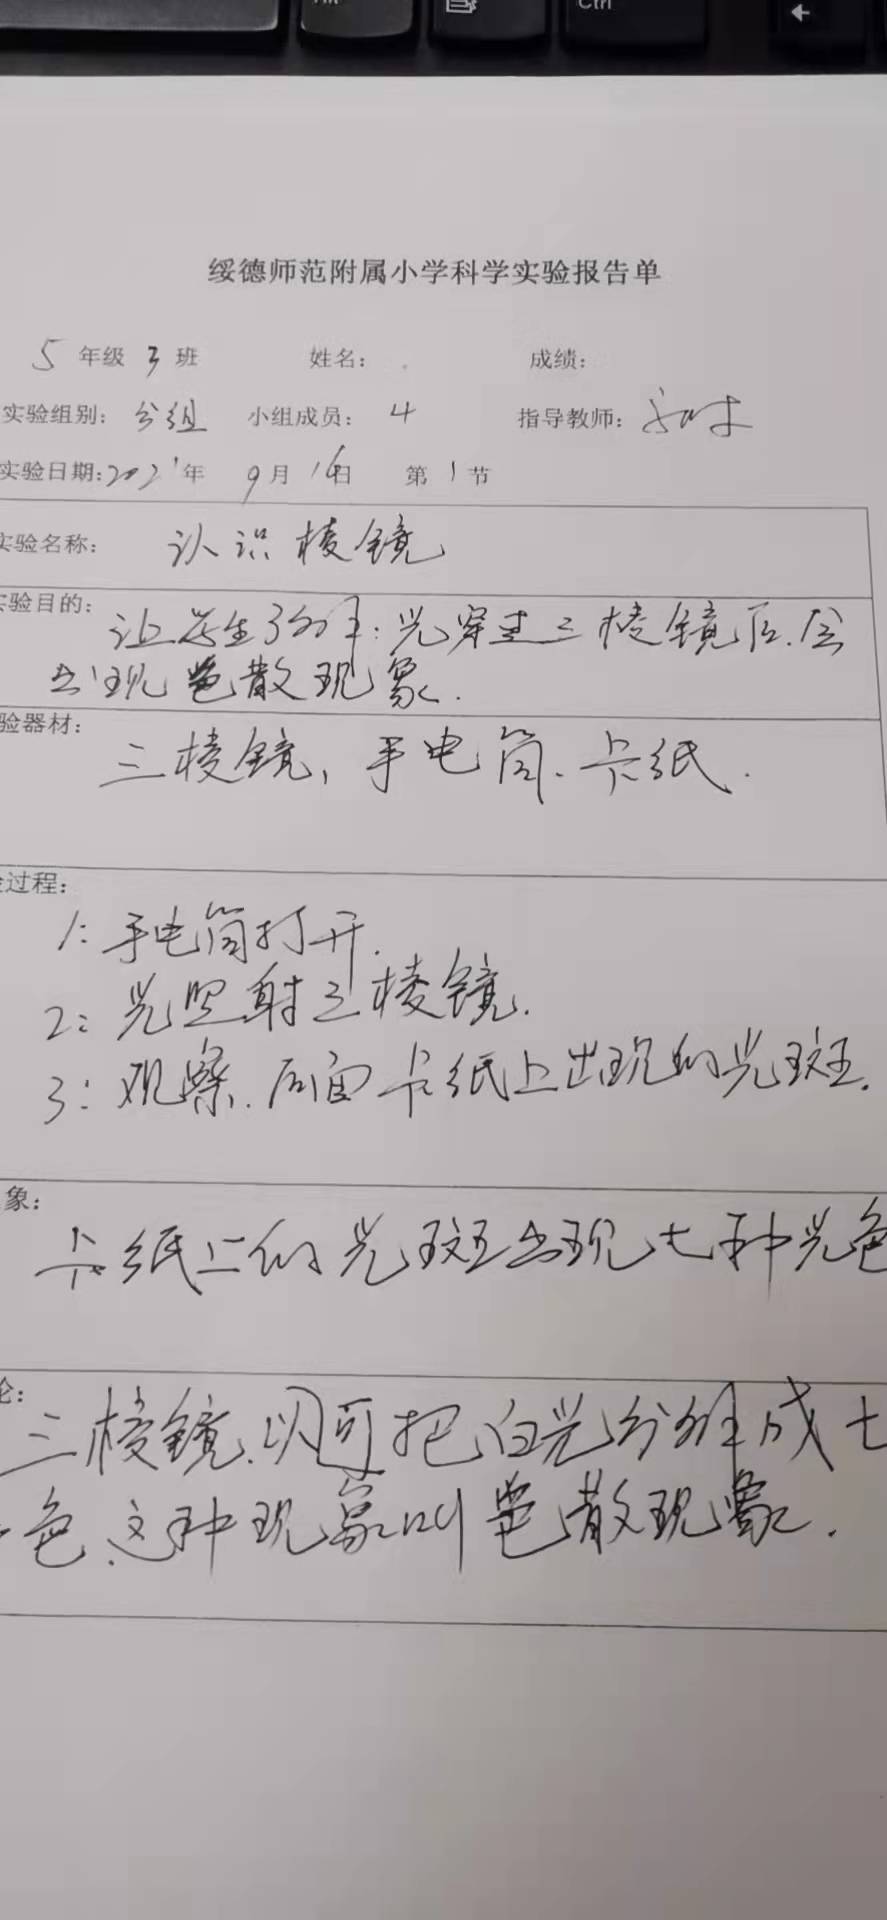 绥德师范附属小学科学实验报告单
5 年级 3 班 姓名: 成绩:
实验组别: 分组 小组成员: 4 指导教师:
实验日期: 2021年 9月 16日 第 1 节
实验名称: 认识棱镜
实验目的: 让学生了解: 光穿过三棱镜后.会
出现色散现象.
验器材: 三棱镜, 手电筒. 卡纸.
过程:
1: 手电筒打开.
2: 光照射三棱镜.
3: 观察.后面卡纸上出现的光斑.
象:
卡纸上的光斑出现七种光色
论:
三棱镜.以可把白光分解成七
色.这种现象叫色散现象.